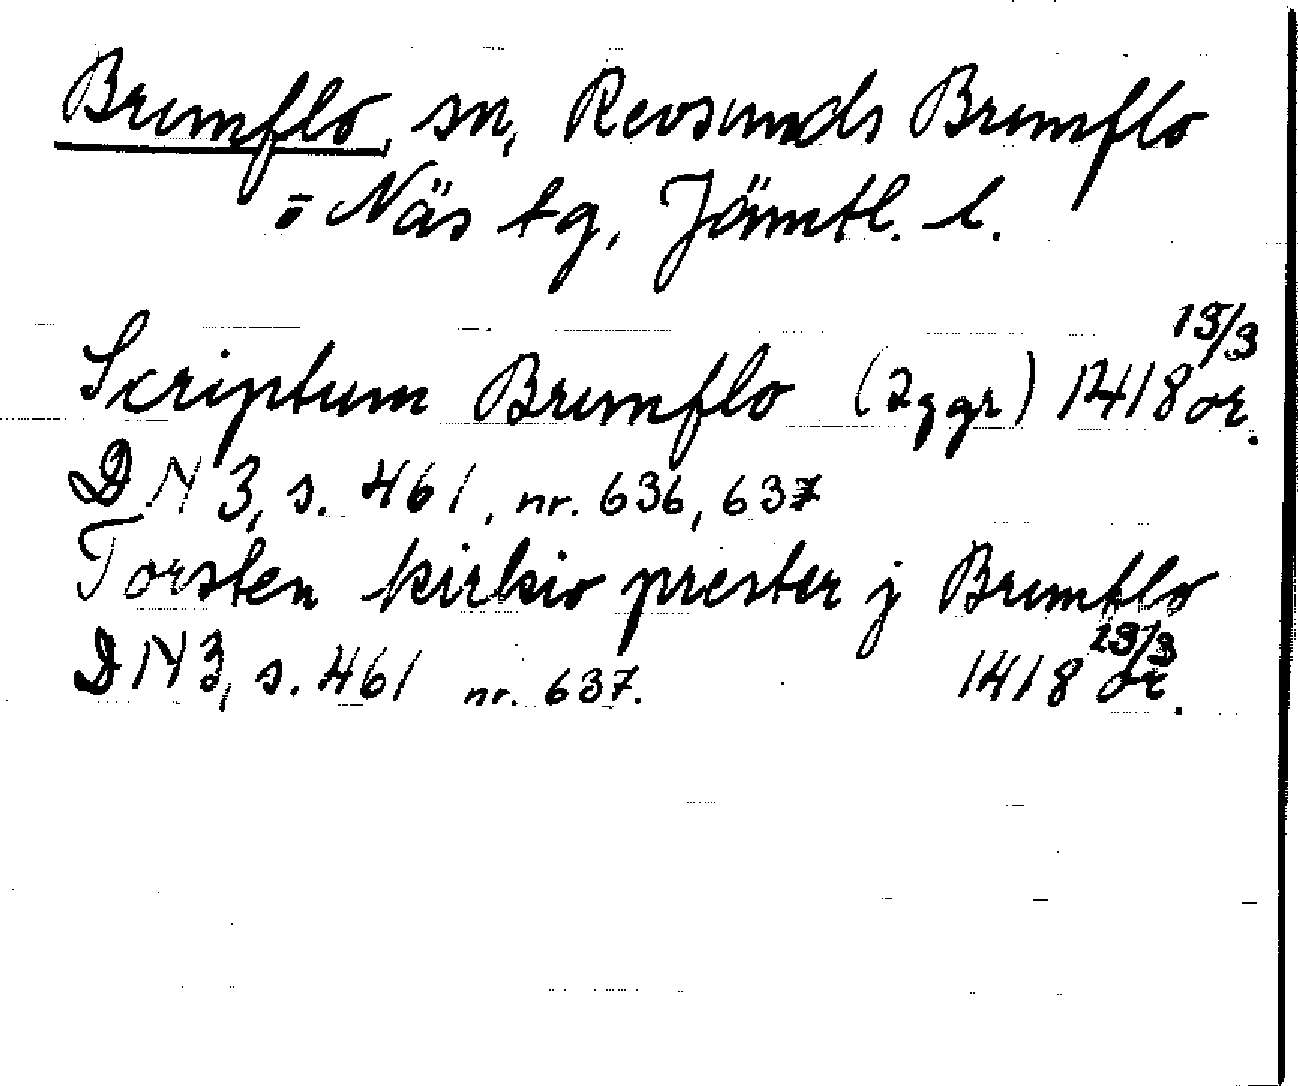 Brunflo, sn, Revsunds Brunflo
o Näs tg, Jämtl. l.
Scriptum Brunflo (2 ggr) 1418 13/3 or.
DN 3, s. 461, nr. 636, 637
Torsten kirkio prester j Brunflo
DN 3, s. 461 nr. 637. 1418 13/3 or.